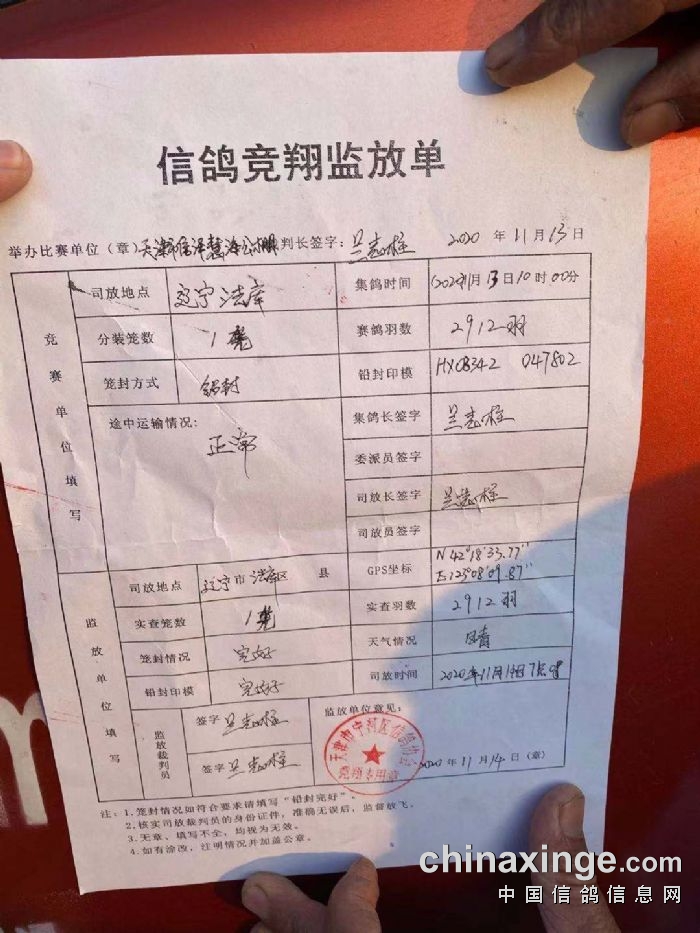 信鸽竞翔监放单
举办比赛单位（章） 判长签字：兰志柱 2020 年 11 月 13 日
竞赛单位填写
司放地点 辽宁法库 集鸽时间 2020年11月13日10时00分
分装笼数 1 赛鸽羽数 2912羽
笼封方式 铅封 铅封印模 HX08342 047802
途中运输情况： 正常 集鸽长签字 兰志柱
委派员签字
司放长签字 兰志柱
司放员签字
监放单位填写
司放地点 辽宁市法库区 县 GPS坐标 N42°18′33.77″
E:123°08′09.87″
实查笼数 1 实查羽数 2912羽
笼封情况 完好 天气情况 晴
铅封印模 完好 司放时间 2020年11月14日7点
监放裁判员 签字 兰志柱 监放单位意见：
签字 兰志柱 2020年11月14日（章）
天津市宁河区信鸽协会
竞翔专用章
注：1.笼封情况如符合要求请填写“铅封完好”。
2.核实司放裁判员的身份证件，准确无误后，监督放飞。
3.无章、填写不全，均视为无效。
4.如有涂改，注明情况并加盖公章。
chinaxinge.com
中国信鸽信息网